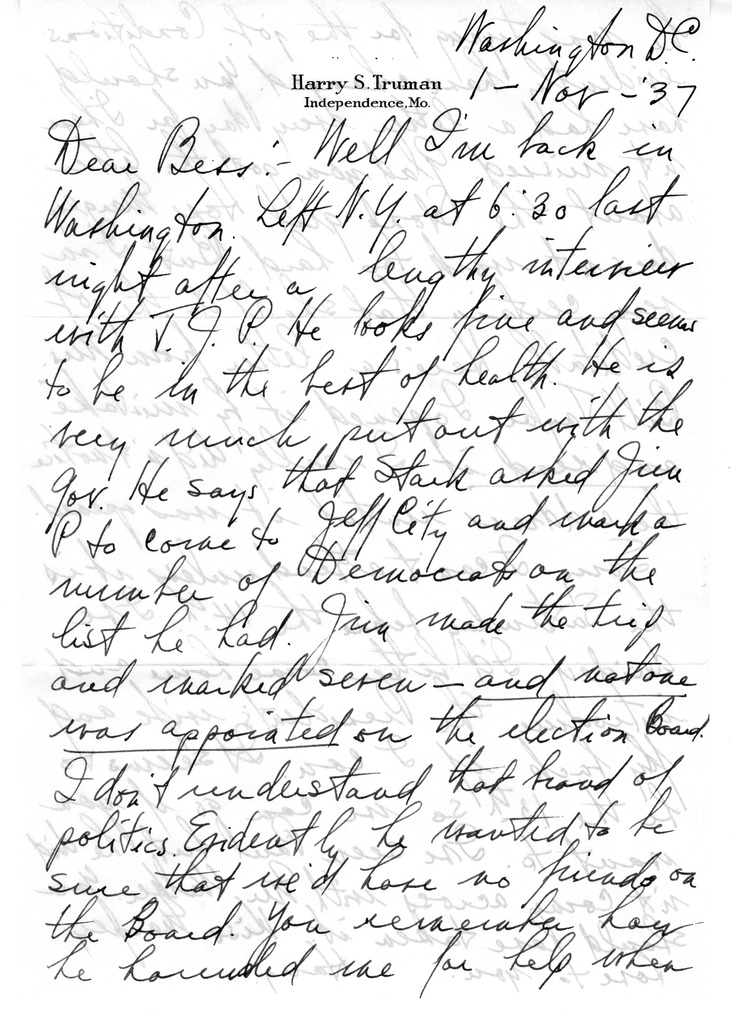 Washington D.C.
Harry S. Truman
Independence, Mo.
1 - Nov - '37
Dear Bess:- Well I'm back in
Washington. Left N.Y. at 6:30 last
night after a lengthy interview
with T. J. P. He looks fine and seems
to be in the best of health. He is
very much put out with the
Gov. He says that Stark asked Jim
P to come to Jeff City and mark a
number of Democrats on the
list he had. Jim made the trip
and marked seven - and not one
was appointed on the election Board.
I don't understand that brand of
politics. Evidently he wanted to be
sure that we'd have no friends on
the Board. You remember how
he hounded me for help when